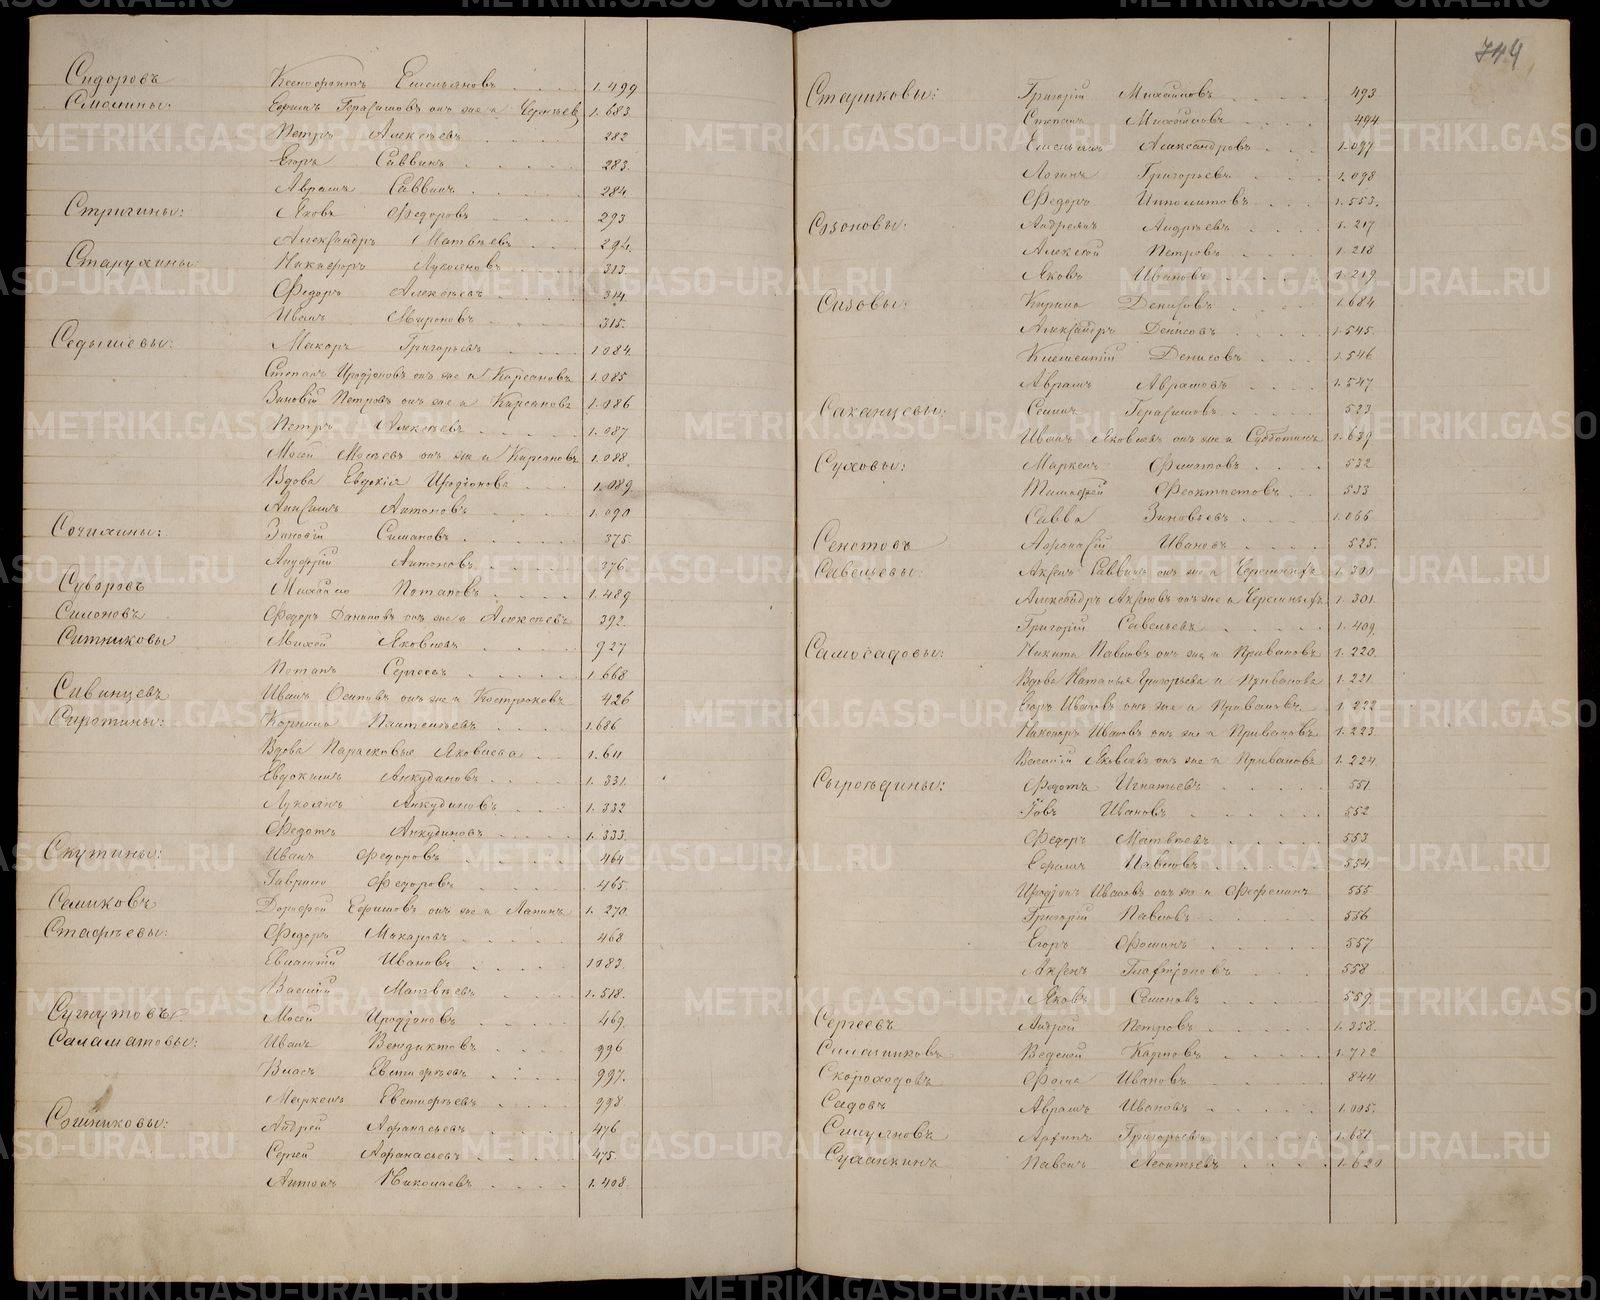 744
Сидоровъ Ксенофонтъ Емельяновъ 1.499
Смолины: Ефимъ Герасимовъ онъ же и 1.683
Петръ Алексѣевъ 282
Егоръ Саввинъ 283
Аврамъ Саввинъ 284
Стригины: Яковъ Федоровъ 293
Александръ Матвѣевъ 294
Старухины: Никифоръ Лукояновъ 313
Федоръ Алексѣевъ 314
Иванъ Мироновъ 315
Седышевы: Макаръ Григорьевъ 1084
Степанъ Иродіоновъ онъ же и Кирсановъ 1.085
Зиновій Петровъ онъ же и Кирсановъ 1.086
Петръ Алексѣевъ 1.087
Мосей Мосѣевъ онъ же и Кирсановъ 1.088
Вдова Евдокія Иродіонова 1.089
Анисимъ Антоновъ 1.090
Сочихины: Зиновій Симановъ 375
Антоновъ 376
Суворовъ Михайло Потаповъ 1.489
Симоновъ Федоръ Даниловъ онъ же и Алексѣевъ 392
Ситниковы Михей Яковлевъ 927
Потапъ Сергѣевъ 1.668
Сивинцевъ Иванъ Осиповъ онъ же и Костроковъ 426
Сиротины: Корнило Пантелѣевъ 1.686
Вдова Парасковья Яковлева 1.611
Евдокимъ Анкудиновъ 1.331
Лукоянъ Анкудиновъ 1.332
Федотъ Анкудиновъ 1.333
Скутины: Иванъ Федоровъ 464
Гаврило Федоровъ 465
Семиковъ Дорофей Ефимовъ онъ же и Лапинъ 1.270
Стафѣевы: Федоръ Макаровъ 468
Евлампій Ивановъ 1083
Василій Матвѣевъ 1.518
Сугнутовъ Мосей Иродіоновъ 469
Саламатовы: Иванъ Венедиктовъ 996
Власъ Евстифѣевъ 997
Маркелъ Евстифѣевъ 998
Андрей Афанасьевъ 476
Сергей Афанасьевъ 475
Антонъ Николаевъ 1.408
Стариковы: Григорій Михайловъ 493
Степанъ Михайловъ 494
Емельянъ Александровъ 1.097
Логинъ Григорьевъ 1.098
Федоръ Ипполитовъ 1.553
Созоновы: Андреянъ Андрѣевъ 1.217
Алексѣй Петровъ 1.218
Яковъ Ивановъ 1.219
Сизовы: Кирило Денисовъ 1.684
Александръ Денисовъ 1.545
Климентій Денисовъ 1.546
Аврамъ Аврамовъ 1.547
Саканцевы: Семенъ Герасимовъ 523
Иванъ Яковлевъ онъ же и Субботинъ 1.639
Суховы: Маркелъ Филатовъ 532
Тимофей Феоктистовъ 533
Савва Зиновьевъ 1.066
Секотовъ Афонасій Ивановъ 525
Савельевы: Аксенъ Саввинъ онъ же и 1.300
Александръ Аксеновъ онъ же и 1.301
Григорій Савельевъ 1.409
Самосадовы: Никита Павловъ онъ же и Приваловъ 1.220
Вдова Наталья Григорьева и Привалова 1.221
Егоръ Ивановъ онъ же и Приваловъ 1.222
Никаноръ Ивановъ онъ же и Приваловъ 1.223
Василій Яковлевъ онъ же и Приваловъ 1.224
Сыроѣдины: Федотъ Игнатьевъ 551
Іовъ Ивановъ 552
Федоръ Матвѣевъ 553
Ефимъ Павловъ 554
Иродіонъ Ивановъ онъ же и Фефелинъ 555
Григорій Павловъ 556
Егоръ Фоминъ 557
Аксенъ 558
Яковъ Семеновъ 559
Сергѣевъ Андрей Петровъ 1.358
Карповъ 1.712
Скороходовъ Фома Ивановъ 844
Садовъ Аврамъ Ивановъ 1.005
Архипъ Григорьевъ 1.681
Суханкинъ Павелъ Леонтьевъ 1.620
METRIKI.GASO-URAL.RU